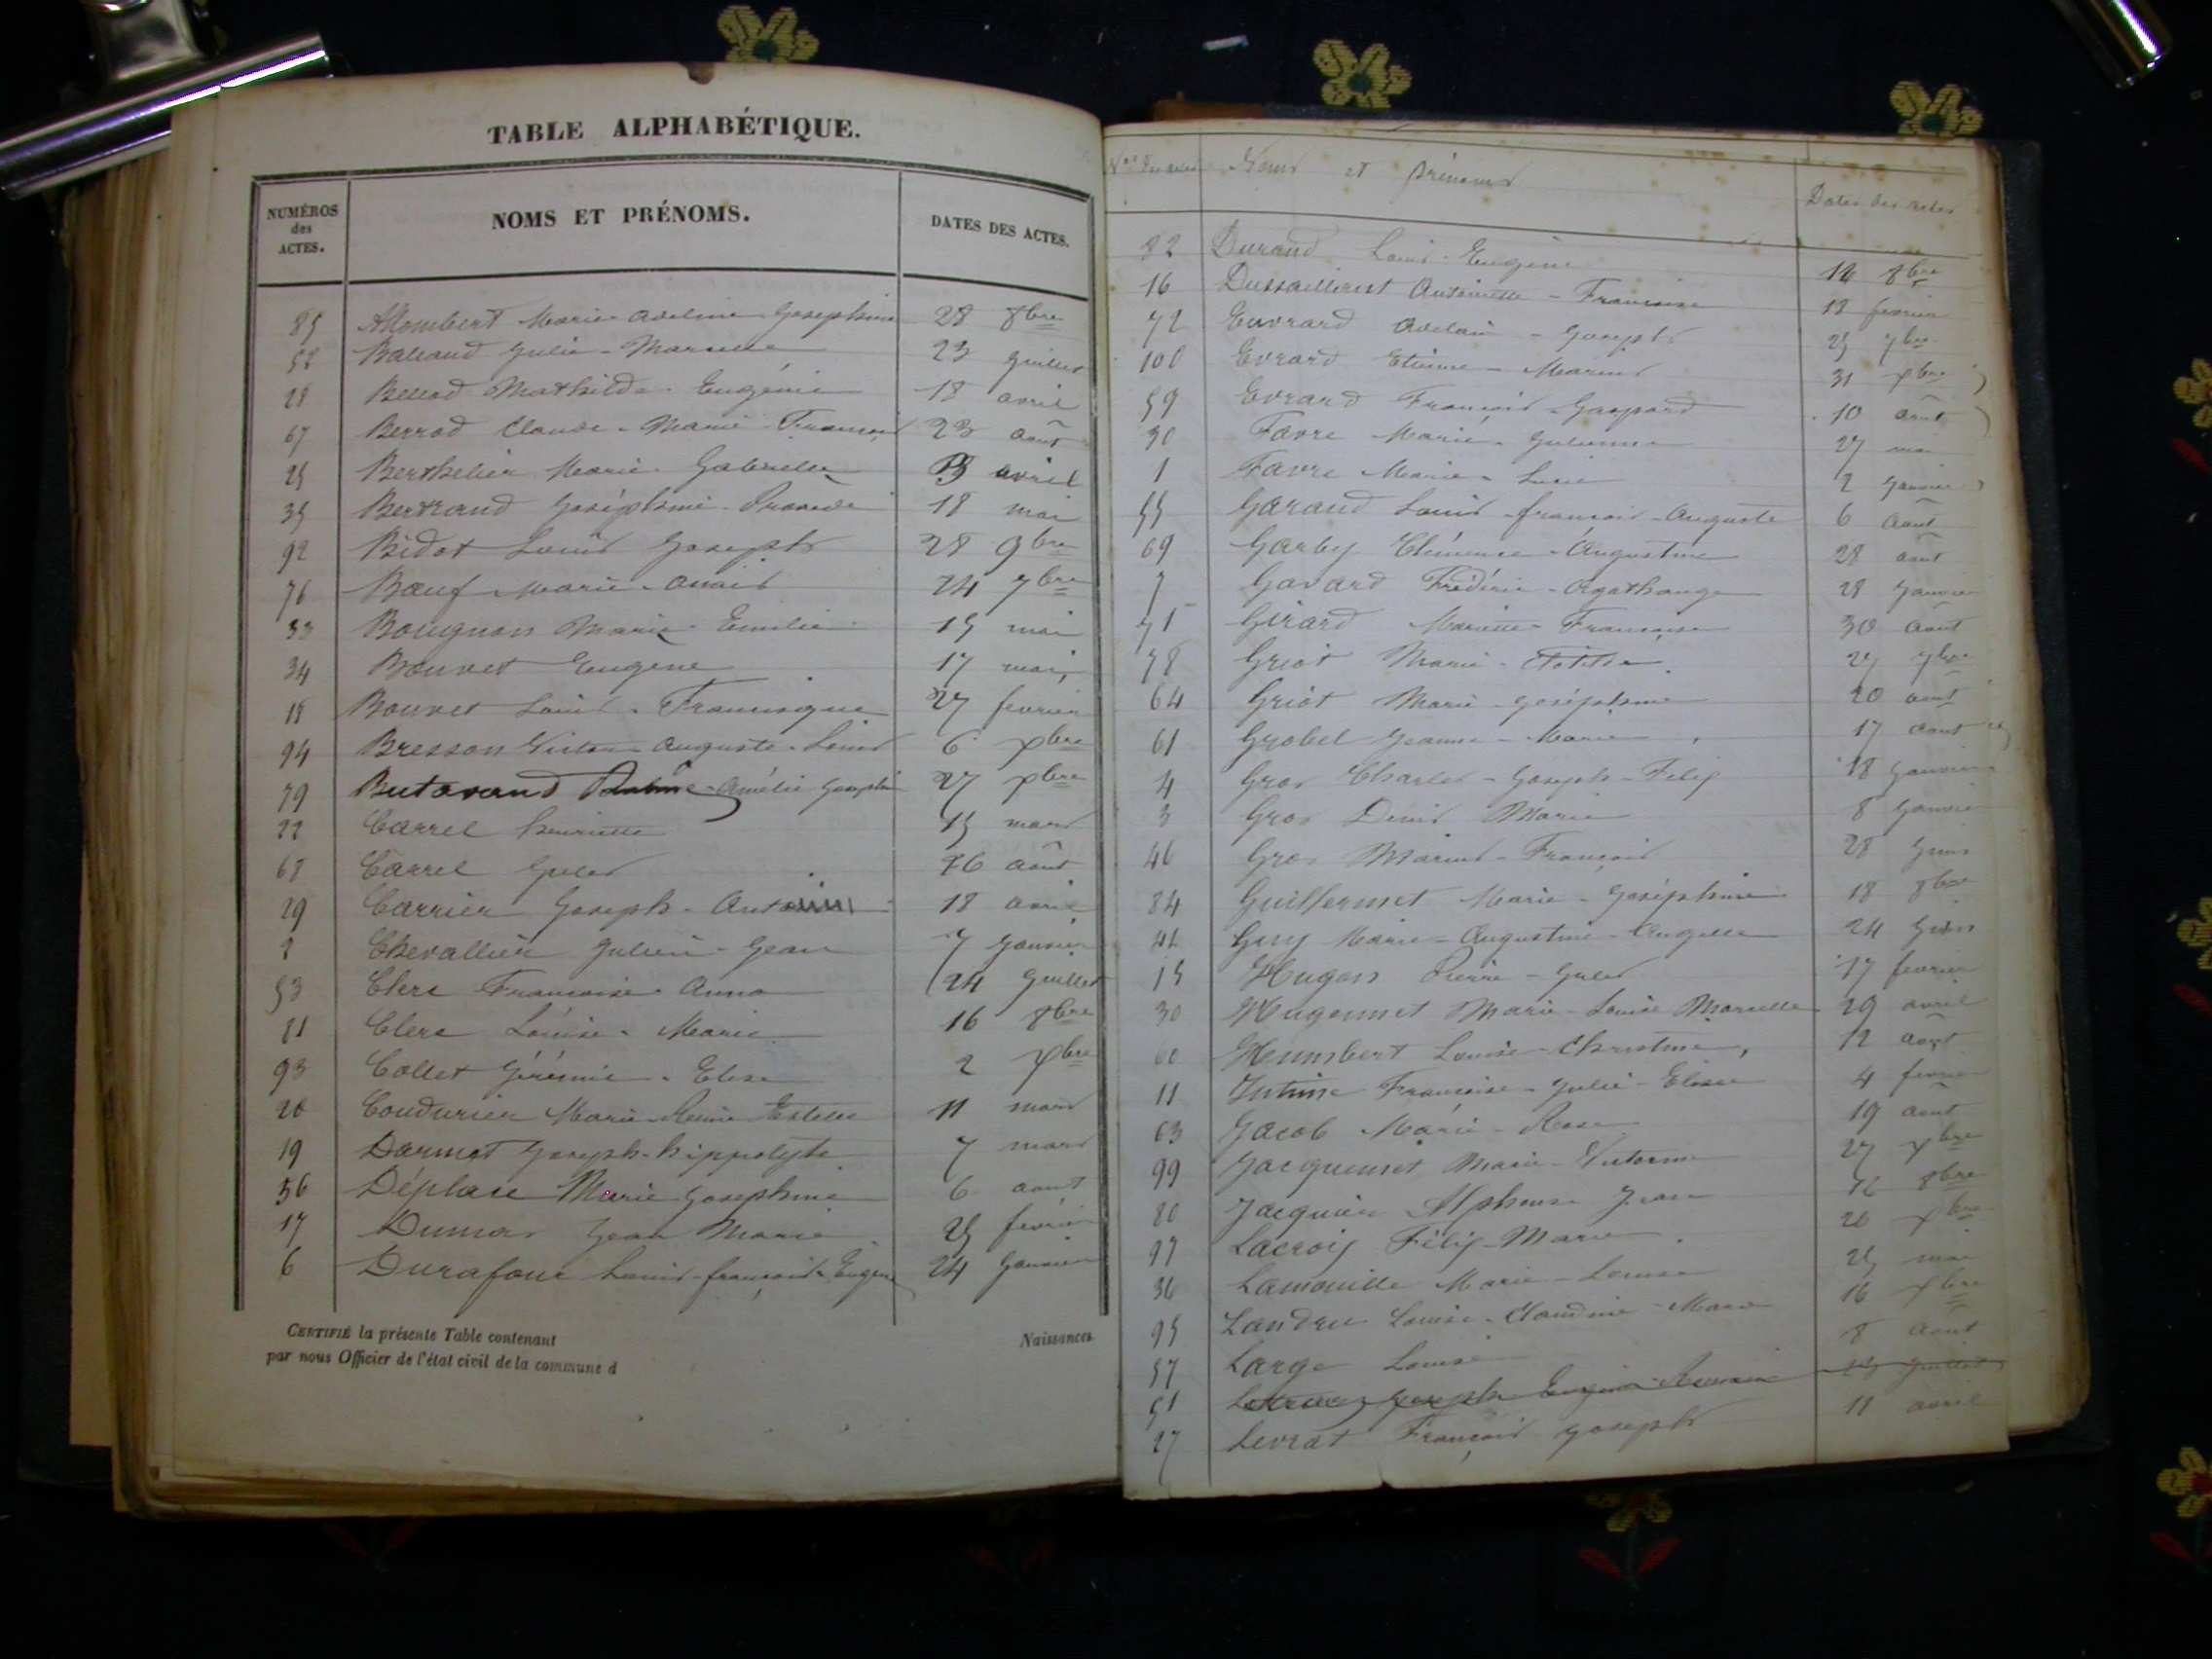 TABLE ALPHABÉTIQUE.
NUMÉROS des ACTES. NOMS ET PRÉNOMS. DATES DES ACTES.
85 Allombert Marie Adeline Josephine 28 8bre
52 Balland Julie - Marcelle 23 Juillet
28 Belled Mathilde - Eugénie 18 avril
67 Berrod Claude - Marie - 23 août
25 Berthelier Marie - Gabrielle avril
35 Bertrand Joséphine - 18 mai
92 Bidot Louis Joseph 28 9bre
76 Bœuf Marie - Anais 24 7bre
33 Bouquon Marie - Emilie 15 mai
34 Bouvet Eugène 17 mai
18 Bouvet Louis - Francisque 27 fevrier
94 Bresson Victor - Auguste - Louis 6 Xbre
79 Butavand - Amélie Josephine 27
22 Carrel henriette 15 mars
68 Carrel Jules 26 août
29 Carrier Joseph - Antoine 18 avril
2 Chevallier Julien - Jean 7 Janvier
53 Clerc Francoise - Anna 24 Juillet
81 Clerc Louise - Marie 16 8bre
93 Collet Jérémie - Elise 2 Xbre
20 Coudurier Marie - - Estelle 11 mars
19 Darmet Joseph - hippolyte 7 mars
56 Déplace Marie Josephine 6 aout
17 Dumas Jean Marie 25 fevrier
6 Durafour Louis - françois - Eugène 24 Janvier
CERTIFIÉ la présente Table contenant Naissances
par nous Officier de l'état civil de la commune d
Nos des actes Noms et prénoms Dates des actes
82 Durand Louis - Eugène 8bre
16 Dussaillant Antoinette - Francoise 18 fevrier
72 Euvrard - Joseph 25 7bre
100 Evrard Etienne - Marius 31 Xbre
59 Evrard François - Gaspard 10 août
Favre Marie - Julienne 27 mai
1 Favre Marie - Lucie 2 Janvier
55 Garaud Louis - françois - Auguste 6 Août
69 Garby Clémence - Augustine 28 août
7 Gavard Frédéric - Agathange 28 Janvier
71 Girard Mariette - Francoise 30 Août
78 Griot Marie - Clotilde 27 7bre
64 Griot Marie - Joséphine 20 août
61 Grobel Jeanne - Marie 17 aout
4 Gros Charles - Joseph - Félix 18 Janvier
3 Gros Denis Marie 8 Janvier
46 Gros Marius - François 28 Juin
84 Guillermet Marie - Joséphine 18 8bre
Guy Marie - Augustine - Angelle 24 Juin
15 Hugon Pierre - Jules 17 fevrier
30 Hugonnet Marie - Louise Marcelle 29 avril
60 Humbert Louise - Christine 12 août
11 Francoise - Julie - Elisée 4 fevrier
63 Jacob Marie - Rose 19 août
99 Jacquemet Marie - Victorine 27 Xbre
80 Jacquier Alphonse Jean 8bre
97 Lacroix Félix - Marie 26 Xbre
36 Lamouille Marie - Louise 25 mai
95 Landru Louise - Claudine - Marie 16 Xbre
57 Large Louise 8 aout
51 Joseph Eugène Juillet
27 Levrat François Joseph 11 avril